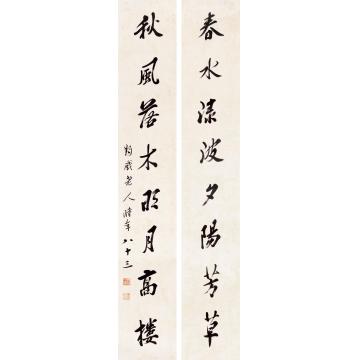 春水渌波夕陽芳草
秋風落木明月高樓
老人時年八十三